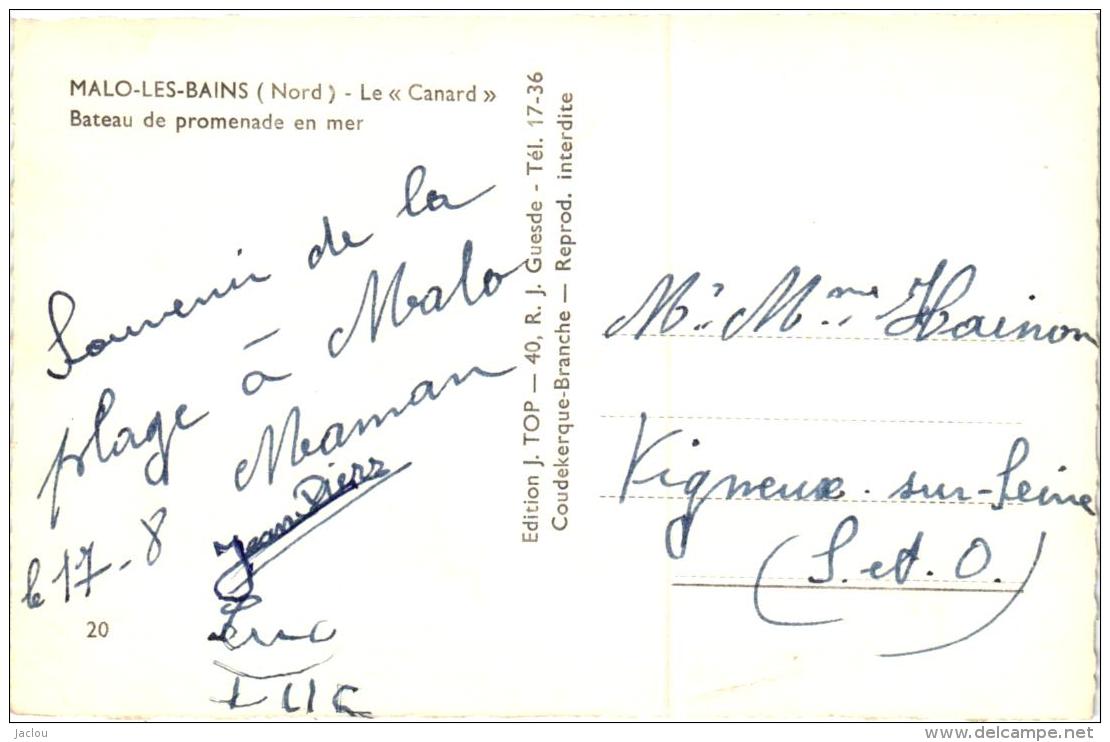 MALO-LES-BAINS (Nord) - Le « Canard »
Bateau de promenade en mer
Souvenir de la
plage à Malo
Maman
Jean Pierr
le 17-8
Luc
LUC
20
Edition J. TOP — 40, R. J. Guesde - Tél. 17-36
Coudekerque-Branche — Reprod. interdite
Mr. Mme Hainon
Vigneux-sur-Seine
(S. et. O.)
Jaclou
www.delcampe.net